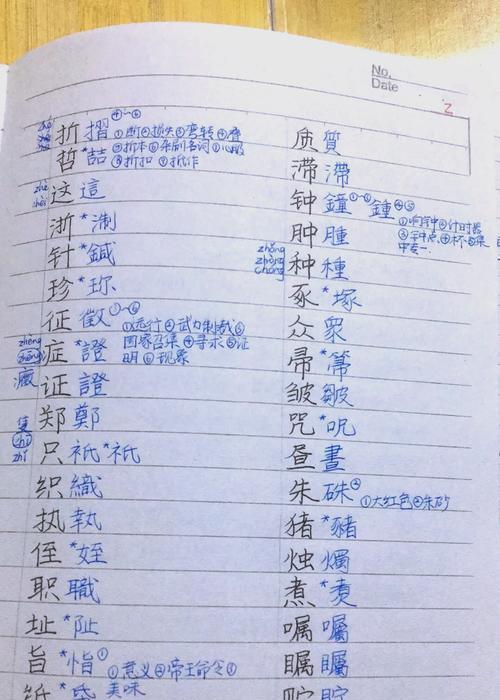 No.
Date
Z
折 摺④~⑥
①断②损失③弯转④叠
哲 *喆 ⑤折本⑥杂剧名词⑦心服
⑧折扣⑨抵作
zhè
zhèi
这 這
浙 *淛
针 *鍼
珍 *珎
征 徵③~⑥
①远行②武力制裁③
国家召集④寻求⑤证
明⑥现象
zhēng
zhèng
症 *證
证 證
郑 鄭
隻
zhī
zhǐ
只 衹 *祇
织 織
执 執
侄 *姪
职 職
址 *阯
旨 *恉① ①意义②帝王命令③
美味
质 質
滞 滯
钟 鐘①~③ 鍾④⑤
①响器中②计时器
③钟点④杯⑤集
中专一
肿 腫
zhǒng
zhòng
chóng
种 種
冢 *塚
众 衆
帚 *箒
皱 皺
咒 *呪
昼 晝
朱 硃② ①大红色②朱砂
猪 *豬
烛 燭
煮 *煑
嘱 囑
瞩 矚
贮 貯